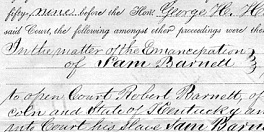 fifty-nine before the Hon. George H. H
said Court, the following amongst other proceedings were the
In the matter of the Emancipation
of Sam Barnett
to open Court Robert Barnett, of
coln and State of Kentucky an
into Court his Slave Sam Barn